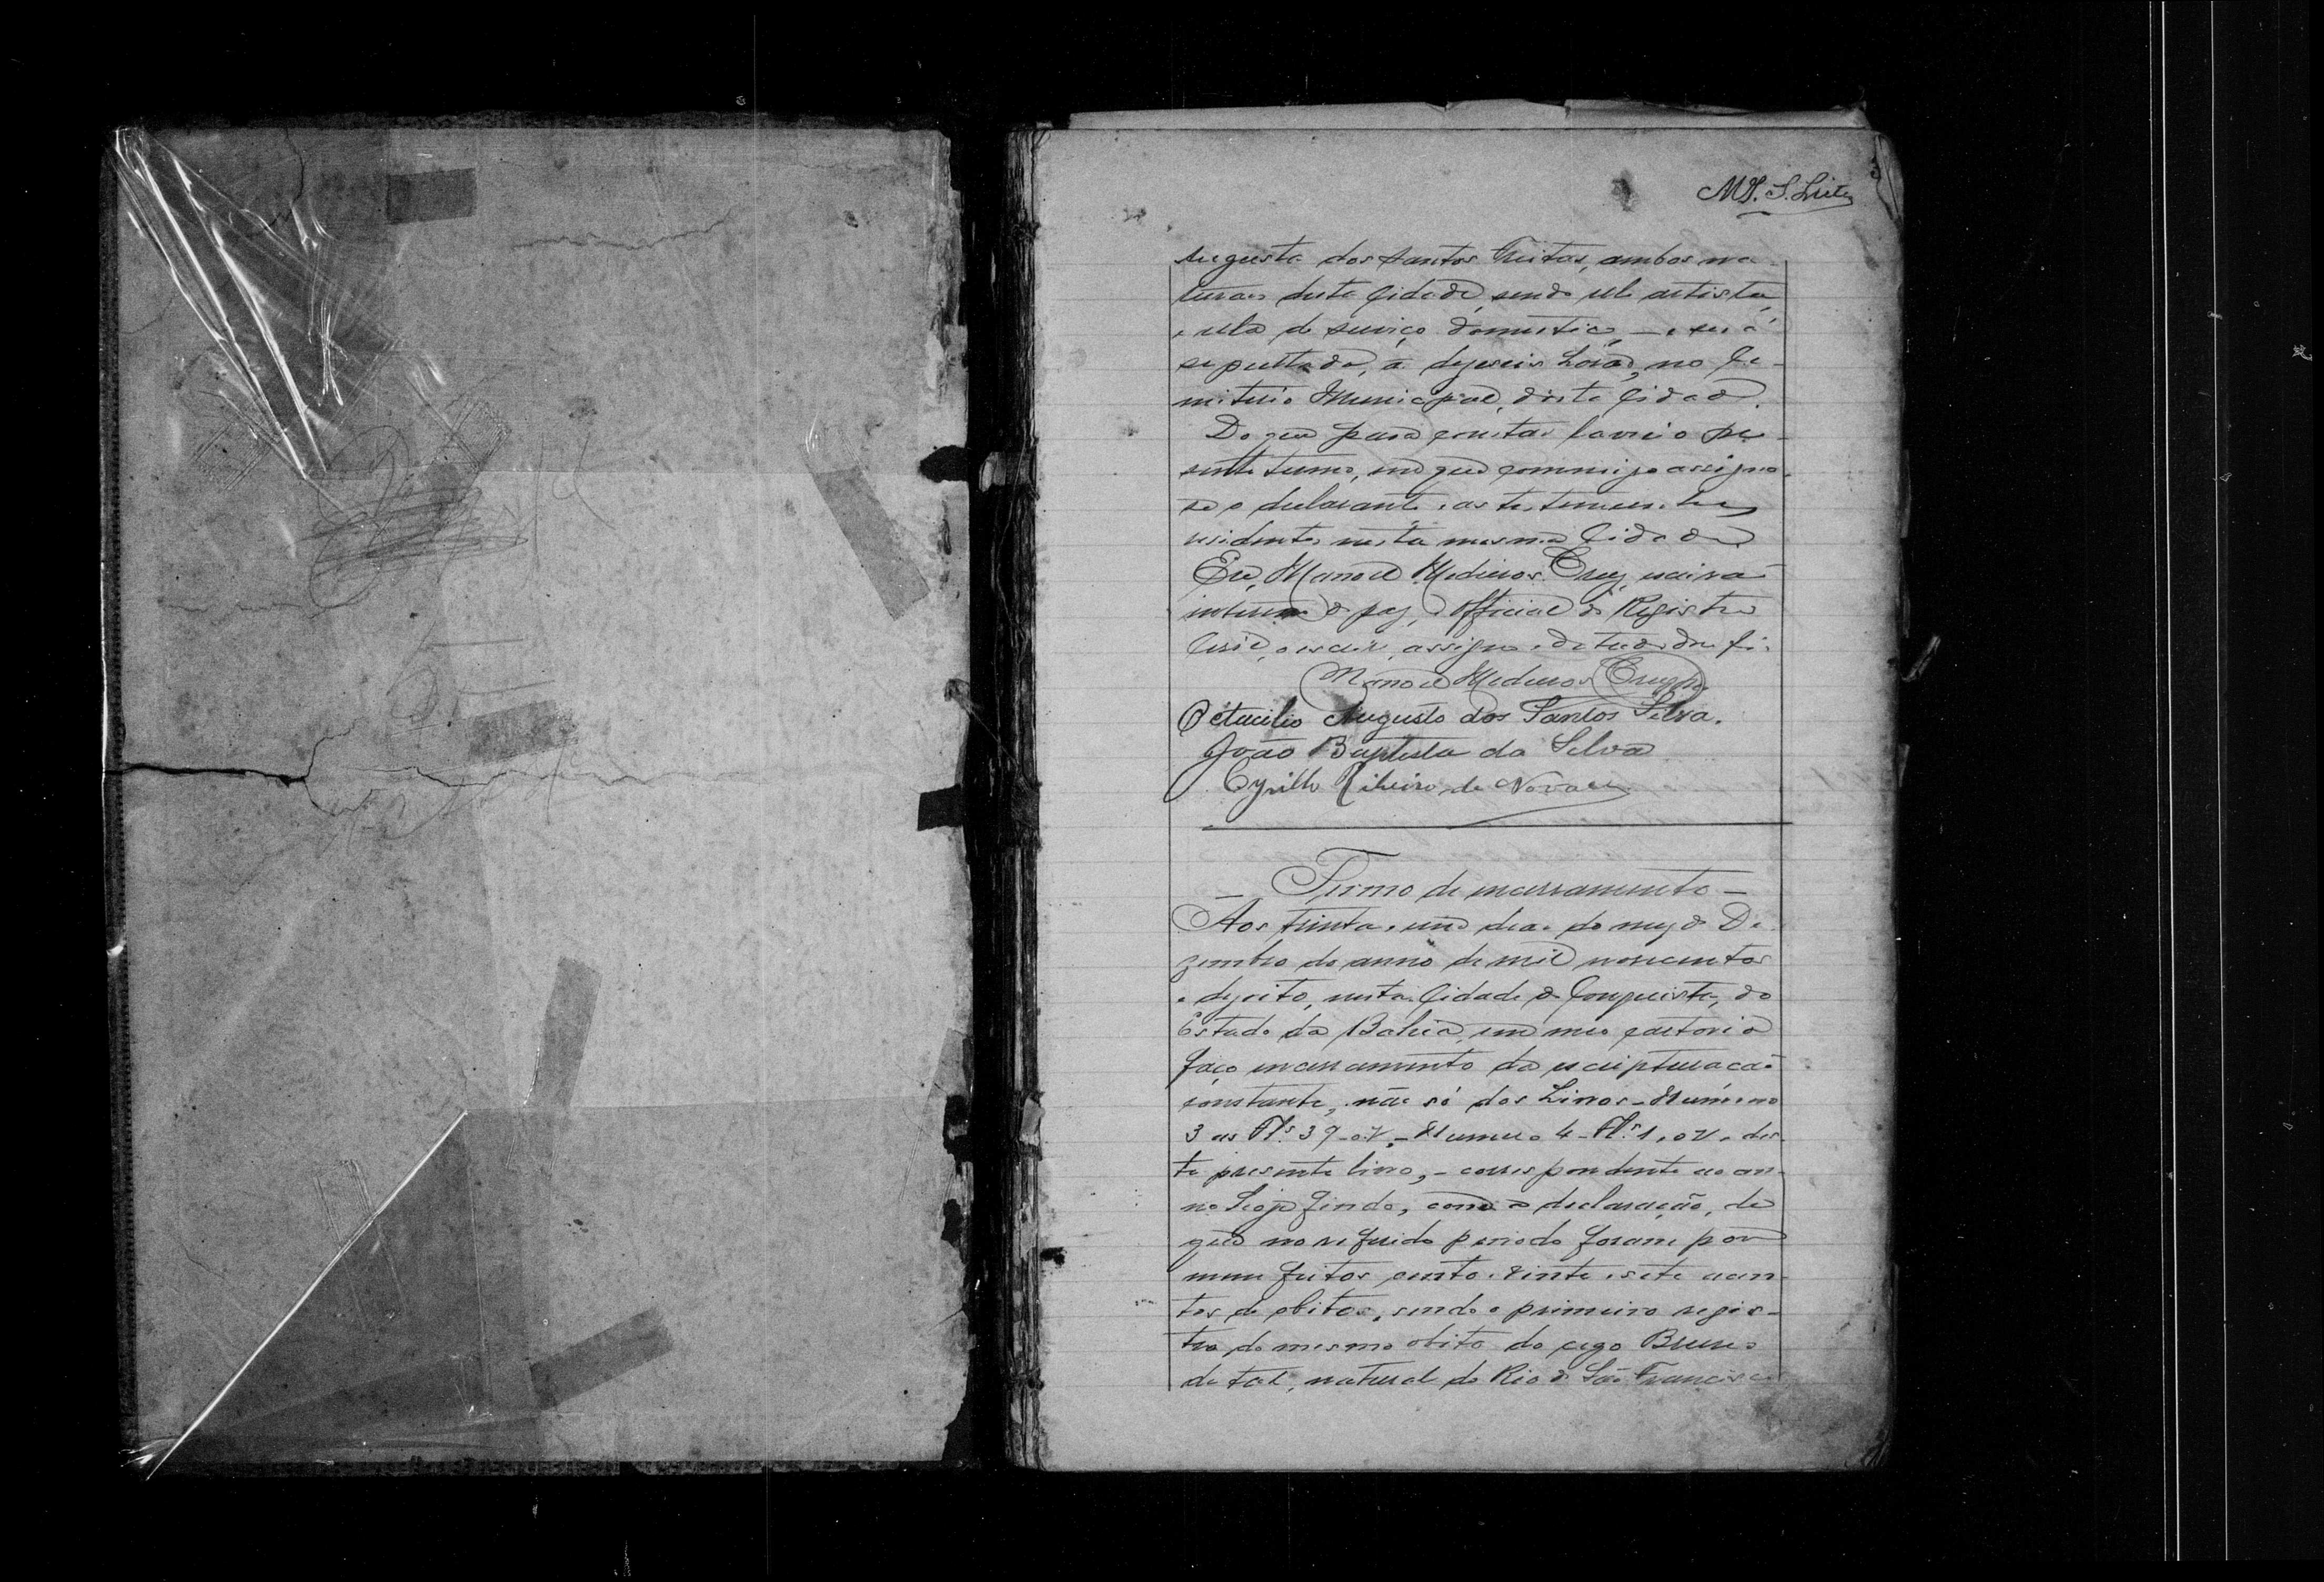 MS. S. Leite
Augusta dos Santos Freitas, ambos na-
turaes desta Cidade, sendo elle artista,
e ella de serviço domestico, — e será
sepultada, ás dezeseis horas, no Ce-
miterio Municipal, desta Cidade.
Do que para constar lavrei o pre-
sente termo, em que commigo assigna-
se o declarante e as testemunhas
residentes nesta mesma Cidade.
Eu, Manoel Medeiros Cruz, escrivão
interino de paz, Official do Registro
Civil, o escrevi, assigno e de tudo dou fé.
Manoel Medeiros Cruz
Octacilio Augusto dos Santos Silva.
João Baptista da Silva
Cyrillo Ribeiro de Novaes
— Termo de encerramento —
Aos trinta e um dias do mez de De-
zembro do anno de mil novecentos
e dezoito, nesta Cidade de Conquista, do
Estado da Bahia, em meu cartorio
faço encerramento da escripturação
constante, não só dos Livros - Numero
3 as Fls. 39 - o V, - Numero 4 - Fls. 1, o V, e des-
te presente livro, - correspondente ao an-
no hoje findo, com a declaração, de
que no referido periodo foram por
mim feitos cento e vinte e sete assen-
tos de obitos, sendo o primeiro regis-
tro do mesmo obito do cego Bruno
de tal, natural do Rio de São Francisco